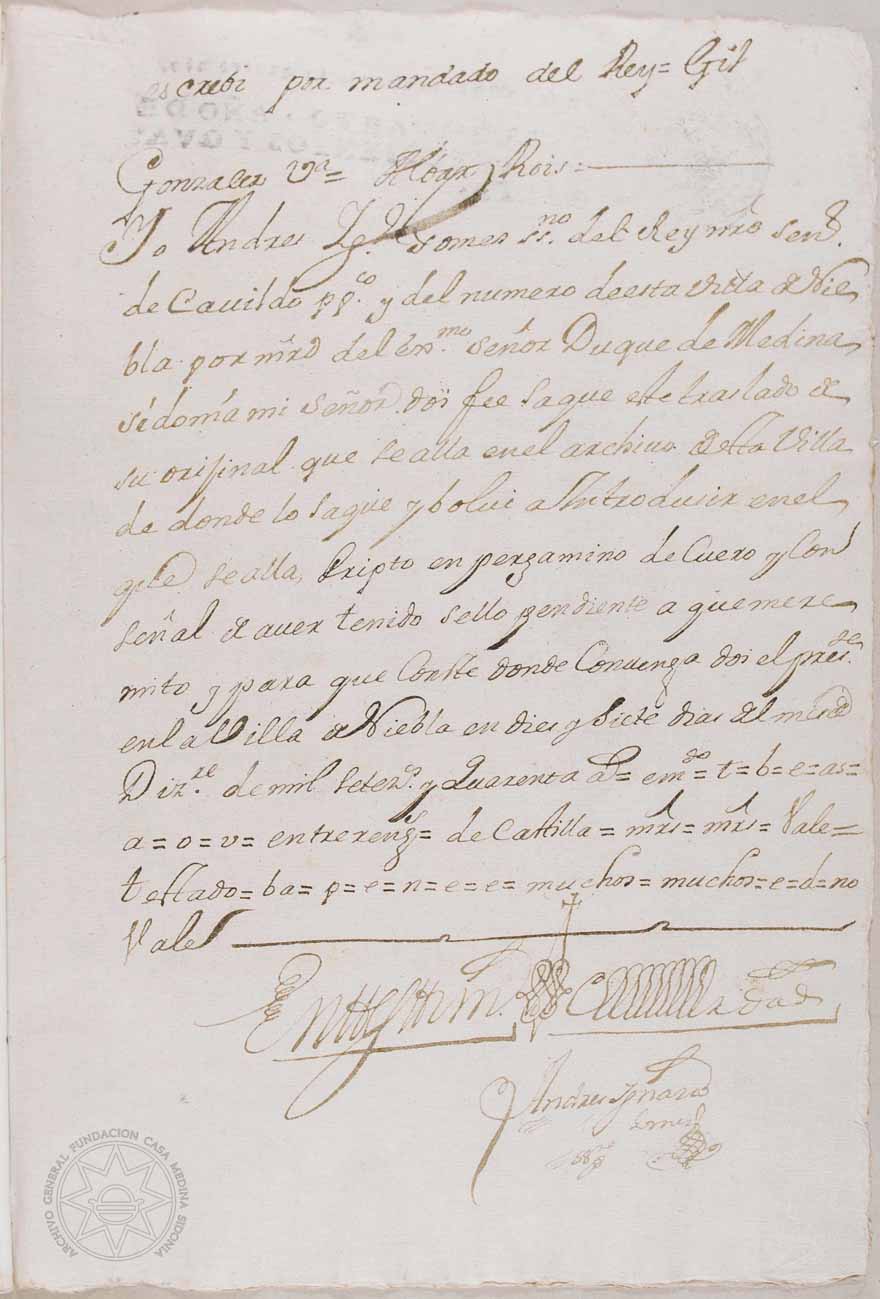 escrebi por mandado del Rey= Gil
Gonzales Va= Albar Rois=
Yo Andres Ygº. Gomes ssno. del Rey nrō señr.
de Cauildo ppco. y del numero de esta villa de Nie
bla por mrd del Exmo. señor Duque de Medina
sidonia mi señor doi fee saque este traslado de
su orijinal que se alla en el archiuo desta Villa
de donde lo saque y bolui a Introdusir en el
que se alla, Escripto en pergamino de Cuero y Con
señal de auer tenido sello pendiente a que me re
mito y para que Conste donde Conuenga doi el presste.
en la Villa de Niebla en dies y siete dias del mes de
Dizre. de mil setezs. y Quarenta as= emdo= t= b= e= as=
a= o= v= entrerengs= de Castilla= mrs= mrs= Vale=
testado= ba= p= e= n= e= e= muchos= muchos= e= d= no
Vale
En testim. de verdad
Andres Ygnacio
Gomes
ARCHIVO GENERAL FUNDACION CASA MEDINA SIDONIA